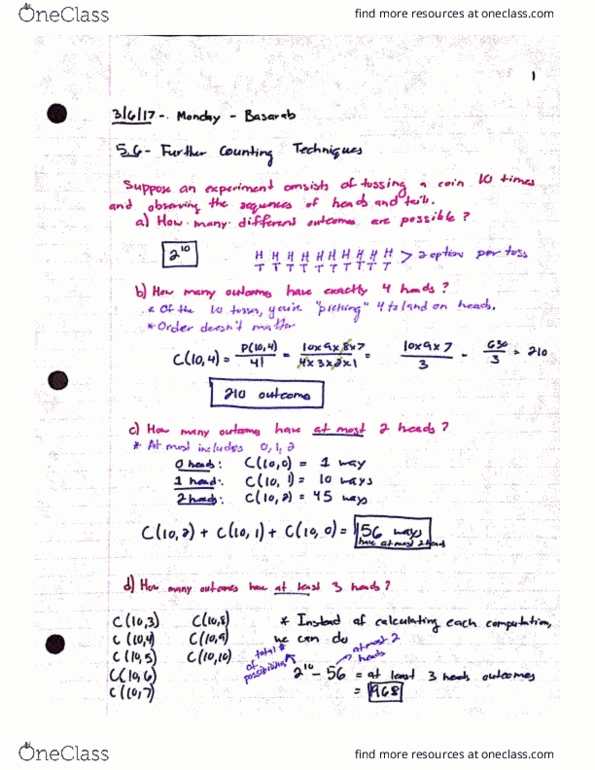 OneClass
find more resources at oneclass.com
1
3/6/17 - Monday - Basarab
5.6 - Further Counting Techniques
Suppose an experiment consists of tossing a coin 10 times
and observing the sequences of heads and tails.
a) How many different outcomes are possible?
2^10
H H H H H H H H H H > 2 options per toss
T T T T T T T T T T
b) How many outcomes have exactly 4 heads?
* Of the 10 tosses, you're "picking" 4 to land on heads.
* Order doesn't matter
C(10,4) = P(10,4)/4! = 10x9x8x7/4x3x2x1 = 10x9x7/3 = 630/3 = 210
210 outcomes
c) How many outcomes have at most 2 heads?
* At most includes 0, 1, 2
0 heads: C(10,0) = 1 way
1 head: C(10,1) = 10 ways
2 heads: C(10,2) = 45 ways
C(10,2) + C(10,1) + C(10,0) = 56 ways
have at most 2 heads
d) How many outcomes have at least 3 heads?
C(10,3) C(10,8) * Instead of calculating each computation,
C(10,4) C(10,9) we can do
C(10,5) C(10,10) total # of possibilities at most 2 heads
C(10,6) 2^10 - 56 = at least 3 heads outcomes
C(10,7) = 968
OneClass
find more resources at oneclass.com